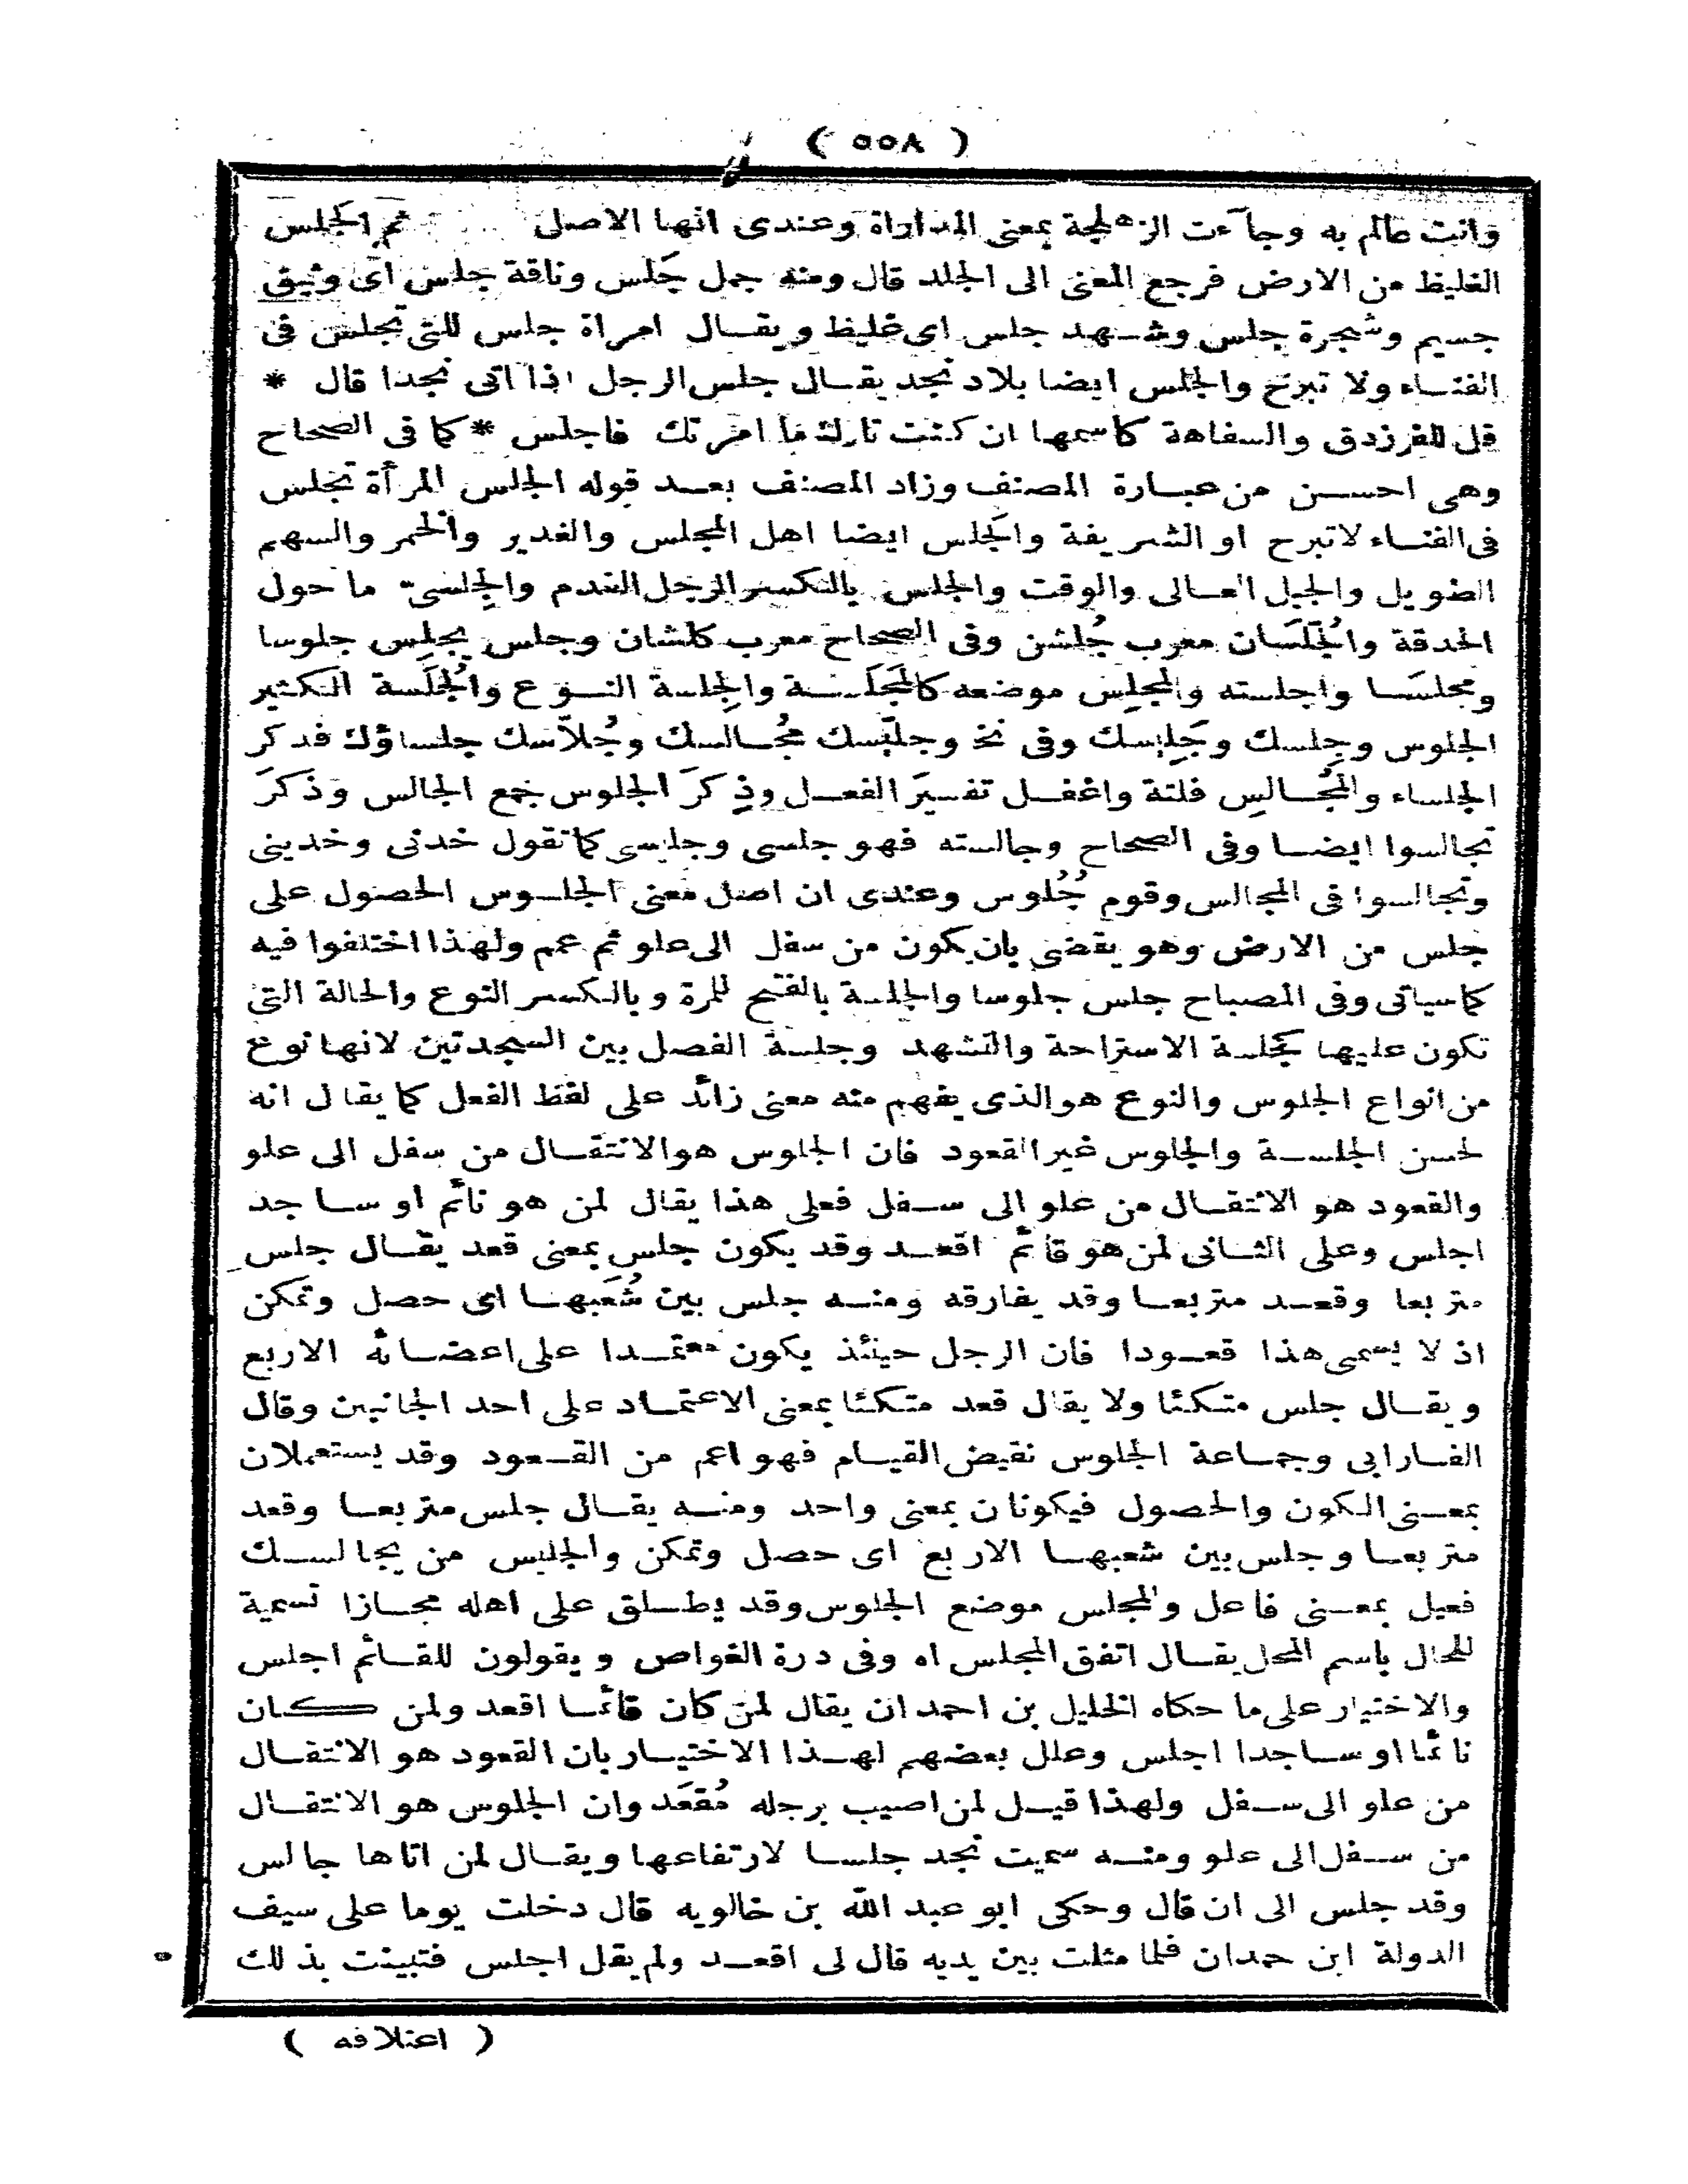 ( ٥٥٨ )
وانت عالم به وجآءت الزهلجة بمعنى المداراة وعندى انها الاصل ثم الجَلس
الغليظ من الارض فرجع المعنى الى الجلد قال ومنه جمل جَلس وناقة جلس اى وثيق
جسيم وشجرة جلس وشهد جلس اى غليظ ويقال امراة جلس للتى تجلس فى
الفناء ولا تبرح والجلس ايضا بلاد نجد يقال جلس الرجل اذا اتى نجدا قال *
قل للفرزدق والسفاهة كاسمها ان كنت تارك ما امرتك فاجلس * كما فى الصحاح
وهى احسن من عبارة المصنف وزاد المصنف بعد قوله الجلس المرأة تجلس
فى الفناء لاتبرح او الشريفة والجَلس ايضا اهل المجلس والغدير والخمر والسهم
الطويل والجبل العالى والوقت والجلس بالكسر الرجل الفدم والجِلسىّ ما حول
الحدقة والجُلَّسَان معرب جُلشن وفى الصحاح معرب كلشان وجلس يجلِس جلوسا
ومجلسَا واجلسته والمجلِس موضعه كالمَجلَسة والجِلسة النوع والجُلَسة الكثير
الجلوس وجِلسك وجَلِيسك وفى نخ وجلّيسك مُجالسك وجُلاّسك جلساؤك فذكر
الجلساء والمُجالِس فلتة واغفل تفسيرَ الفعل وذِكرَ الجلوس جمع الجالس وذكرَ
تجالسوا ايضا وفى الصحاح وجالسته فهو جلسى وجليسى كما تقول خدنى وخدينى
وتجالسوا فى المجالس وقوم جُلُوس وعندى ان اصل معنى الجلوس الحصول على
جلس من الارض وهو يقضى بان يكون من سفل الى علو ثم عمم ولهذا اختلفوا فيه
كما سياتى وفى المصباح جلس جلوسا والجلسة بالفتح للمرة وبالكسر النوع والحالة التى
تكون عليها كجلسة الاستراحة والتشهد وجلسة الفصل بين السجدتين لانها نوع
من انواع الجلوس والنوع هو الذى يفهم منه معنى زائد على لفظ الفعل كما يقال انه
لحسن الجلسة والجلوس غير القعود فان الجلوس هو الانتقال من سفل الى علو
والقعود هو الانتقال من علو الى سفل فعلى هذا يقال لمن هو نائم او ساجد
اجلس وعلى الثانى لمن هو قائم اقعد وقد يكون جلس بمعنى قعد يقال جلس
متربعا وقعد متربعا وقد يفارقه ومنه جلس بين شُعَبها اى حصل وتمكن
اذ لا يسمى هذا قعودا فان الرجل حينئذ يكون معتمدا على اعضائه الاربع
ويقال جلس متكئا ولا يقال قعد متكئا بمعنى الاعتماد على احد الجانبين وقال
الفارابى وجماعة الجلوس نقيض القيام فهو اعم من القعود وقد يستعملان
بمعنى الكون والحصول فيكونان بمعنى واحد ومنه يقال جلس متربعا وقعد
متربعا وجلس بين شعبها الاربع اى حصل وتمكن والجليس من يجالسك
فعيل بمعنى فاعل والمجلس موضع الجلوس وقد يطلق على اهله مجازا تسمية
للحال باسم المحل يقال اتفق المجلس اه وفى درة الغواص ويقولون للقائم اجلس
والاختيار على ما حكاه الخليل بن احمد ان يقال لمن كان قائما اقعد ولمن كان
نائما او ساجدا اجلس وعلل بعضهم لهذا الاختيار بان القعود هو الانتقال
من علو الى سفل ولهذا قيل لمن اصيب برجله مُقعَد وان الجلوس هو الانتقال
من سفل الى علو ومنه سميت نجد جلسا لارتفاعها ويقال لمن اتاها جالس
وقد جلس الى ان قال وحكى ابو عبد الله بن خالويه قال دخلت يوما على سيف
الدولة ابن حمدان فلما مثلت بين يديه قال لى اقعد ولم يقل اجلس فتبينت بذلك
( اعتلاقه )